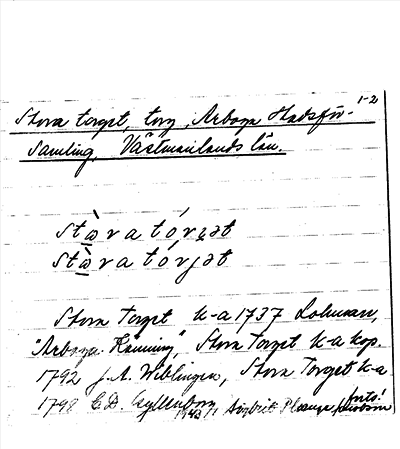 1-2
Stora torget, torg, Arboga Stadsför-
samling, Västmanlands län.
stὼra tórgət
stὼra tórjət
Stora Torget k-a 1737 Lohman,
"Arboga Känning", Stora Torget k-a kop.
1792 J. A. Wiblingen, Stora Torget k-a
1798 C. D. Gyllenborg
1943 Sigbrit Plænge